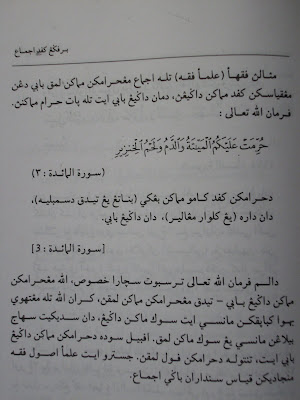 برڤڬڠ كڤد اجماع
مثالن فقهأ (علمأ فقه) تله اجماع مڠحرامكن ماكن لمق بابي دڠن
مڠقياسكن كڤد ماكن داڬيڠن، دمان داڬيڠ بابي ايت تله ڤات حرام ماكنن.
فرمان الله تعالى :
حُرِّمَتْ عَلَيْكُمُ الْمَيْتَةُ وَالدَّمُ وَلَحْمُ الْخِنزِيرِ
(سورة المائدة : ٣)
دحرامكن كڤد كامو ماكن بڠكي (بناتڠ يڠ تيدق دسمبليه)،
دان داره (يڠ كلوار مڠالير)، دان داڬيڠ بابي.
[سورة المائدة : 3]
دالم فرمان الله تعالى ترسبوت سچارا خصوص، الله مڠحرامكن
ماكن داڬيڠ بابي – تيدق مڠحرامكن ماكن لمقن، كران الله تله مڠتهوي
بهوا كباپقكن مانسي ايت سوك ماكن داڬيڠ، دان سديكيت سهاج
بيلاڠن مانسي يڠ سوك ماكن لمق. اڤبيل سوده دحرامكن ماكن داڬيڠ
بابي ايت، تنتوله دحرامكن ڤول لمقن. جسترو ايت علمأ اصول فقه
منجاديكن قياس سنداران باڬي اجماع.